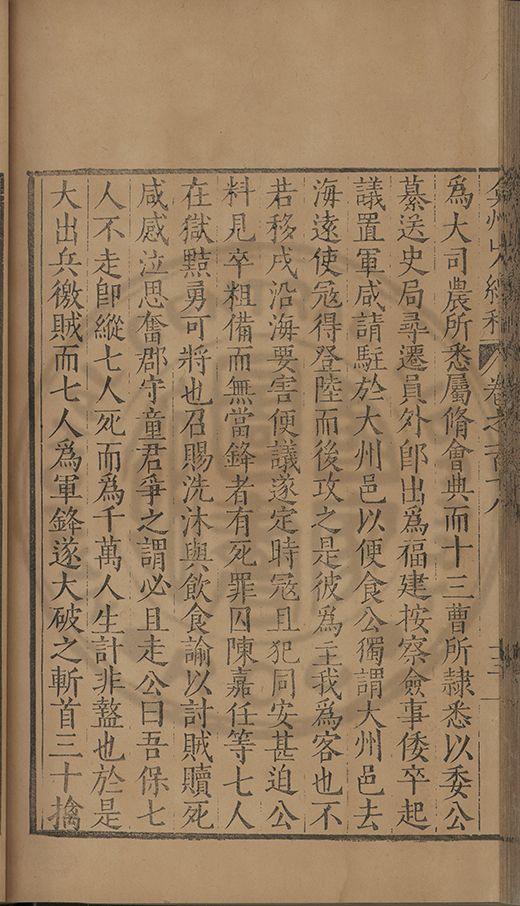 爲大司農所悉屬脩會典而十三曹所隷悉以委公
纂送史局尋遷員外郎出爲福建按察僉事倭卒起
議置軍咸請駐於大州邑以便食公獨謂大州邑去
海遠使冦得登陸而後攻之是彼爲主我爲客也不
若移戍沿海要害便議遂定時冦且犯同安甚迫公
料見卒粗備而無當鋒者有死罪囚陳嘉任等七人
在獄黠勇可將也召賜洗沐與飲食諭以討賊贖死
咸感泣思奮郡守童君爭之謂必且走公曰吾保七
人不走卽縱七人死而爲千萬人生計非盭也於是
大出兵徼賊而七人爲軍鋒遂大破之斬首三十擒